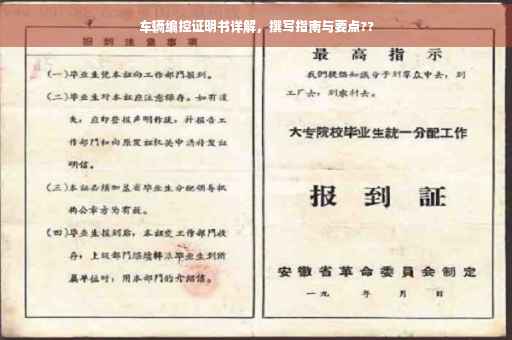 车辆编控证明书详解，撰写指南与要点??
报到注意事项
(一)毕业生凭本证向工作部门报到。
(二)毕业生对本证应注意保存。如有遗
失，应即登报声明作废，并报告工
作部门和向原发证机关申请补发证
明信。
(三)本证必须加盖省毕业生分配领导机
构公章方为有效。
(四)毕业生报到后，本证交工作部门收
存；上级部门继续转派毕业生到所
属单位时，用本部门的介绍信。
最高指示
我们提倡知识分子到群众中去，到
工厂去，到农村去。
大专院校毕业生统一分配工作
报到证
安徽省革命委员会制定
一九 年 月 日